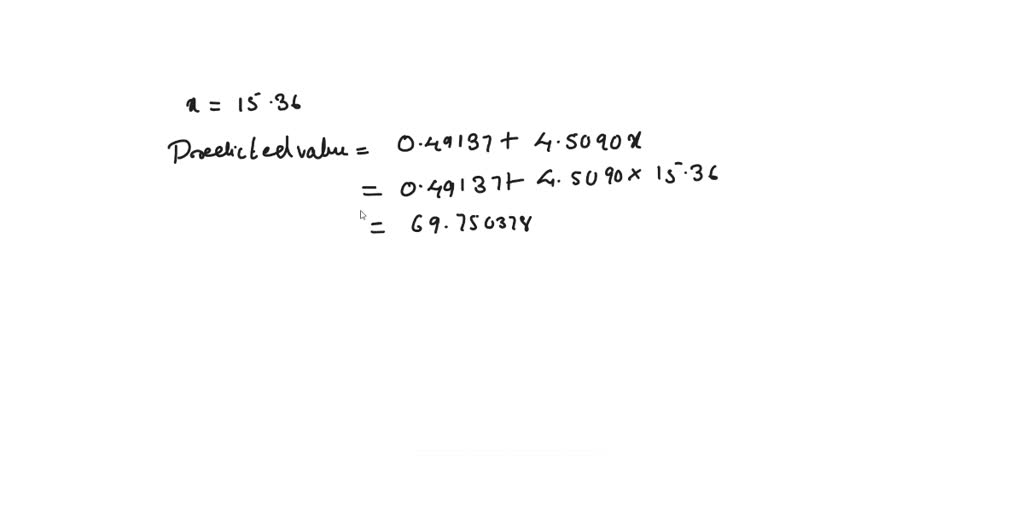 x = 15.36
Predicted value = 0.49137 + 4.5090x
= 0.49137 + 4.5090 × 15.36
= 69.750378